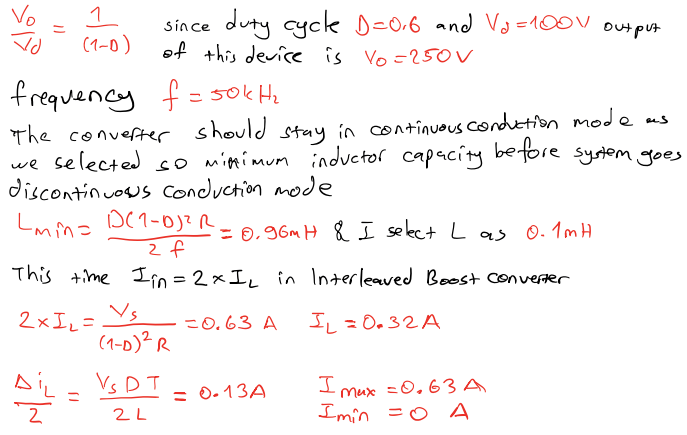 Vo/Vd = 1/(1-D) since duty cycle D=0.6 and Vd=100V output
of this device is Vo=250V
frequency f = 50kHz
The converter should stay in continuous conduction mode as
we selected so minimum inductor capacity before system goes
discontinuous conduction mode
Lmin = D(1-D)²R / 2f = 0.96mH & I select L as 0.1mH
This time Iin = 2×IL in Interleaved Boost converter
2×IL = Vs / (1-D)²R = 0.63 A IL = 0.32A
ΔiL/2 = Vs D T / 2L = 0.13A Imax = 0.63A
Imin = 0 A